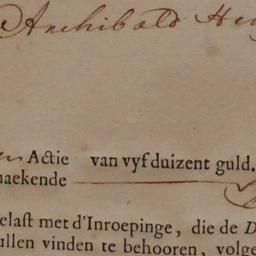 Archibald
Actie van vyf duizent guld.
maekende
elaſt met d'Inroepinge, die de D
ullen vinden te behooren, volge